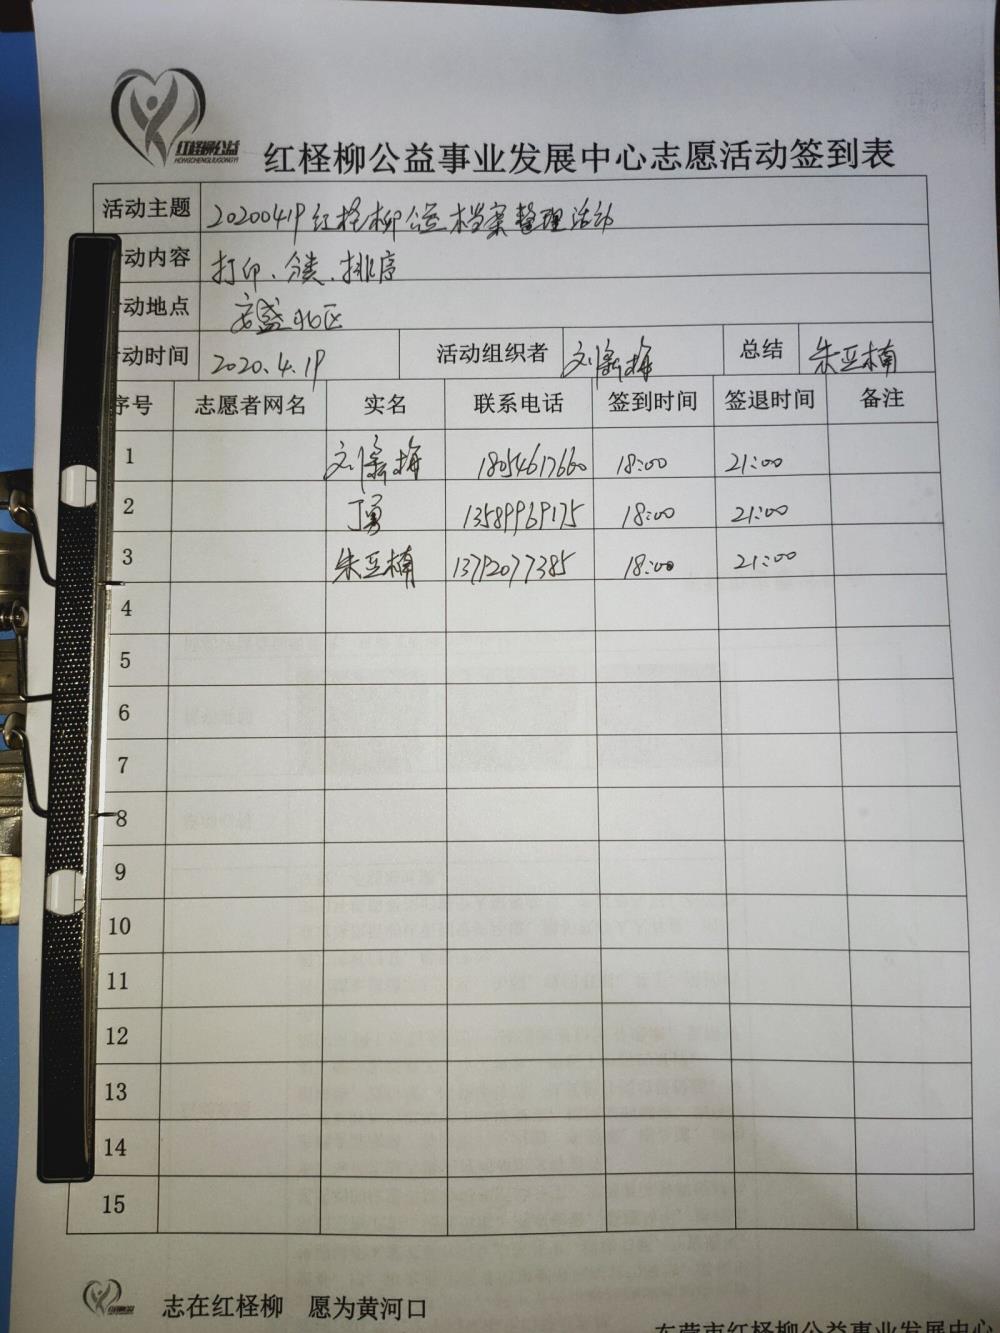 红柽柳公益
HONGCHENGLIUGONGYI
红柽柳公益事业发展中心志愿活动签到表
活动主题 20200419红柽柳公益档案整理活动
动内容 打印、分类、排序
动地点 安盛北区
动时间 2020.4.19 活动组织者 刘新梅 总结 朱亚楠
序号 志愿者网名 实名 联系电话 签到时间 签退时间 备注
1 刘新梅 18054617660 18:00 21:00
2 丁勇 13589969175 18:00 21:00
3 朱亚楠 13792077385 18:00 21:00
4
5
6
7
8
9
10
11
12
13
14
15
志在红柽柳 愿为黄河口
东营市红柽柳公益事业发展中心